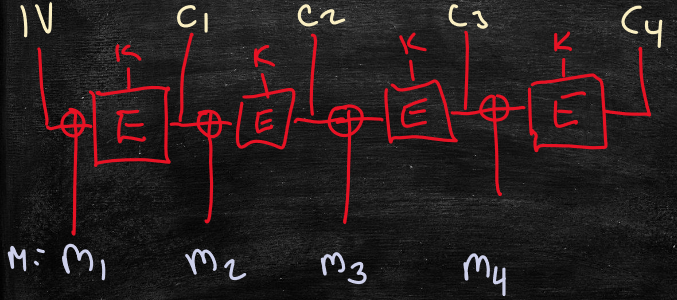 IV C1 C2 C3 C4
K K K K
E E E E
M: m1 m2 m3 m4